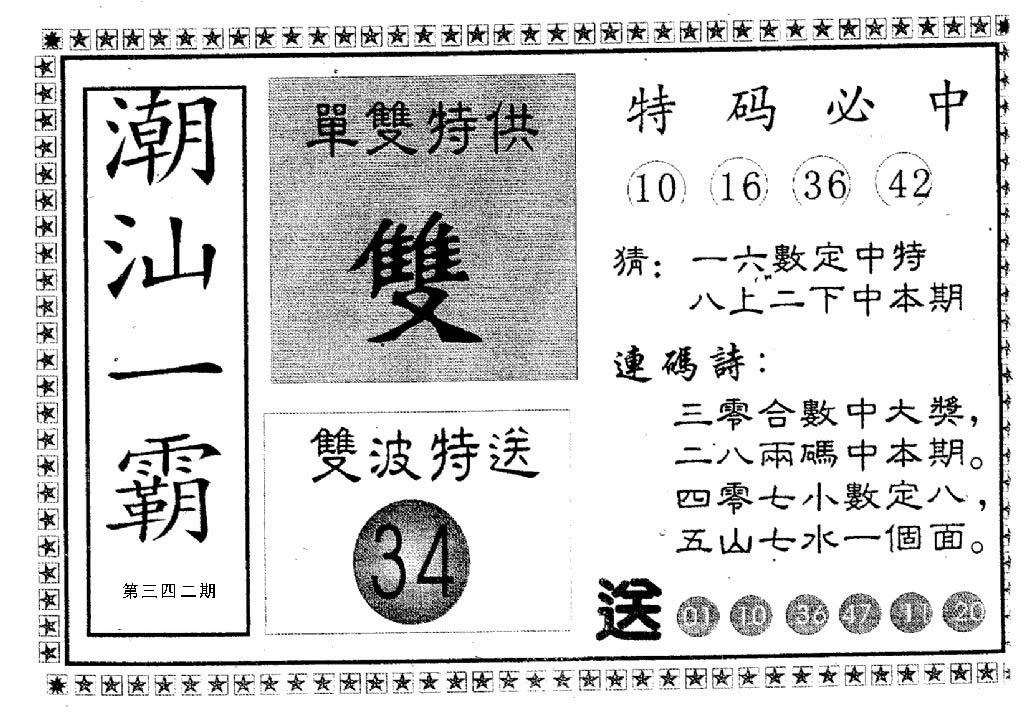 潮汕一霸
第三四二期
單雙特供
雙
雙波特送
34
特码必中
10 16 36 42
猜：一六數定中特
八上二下中本期
連碼詩：
三零合數中大獎，
二八兩碼中本期。
四零七小數定八，
五山七水一個面。
送 01 10 36 47 11 20